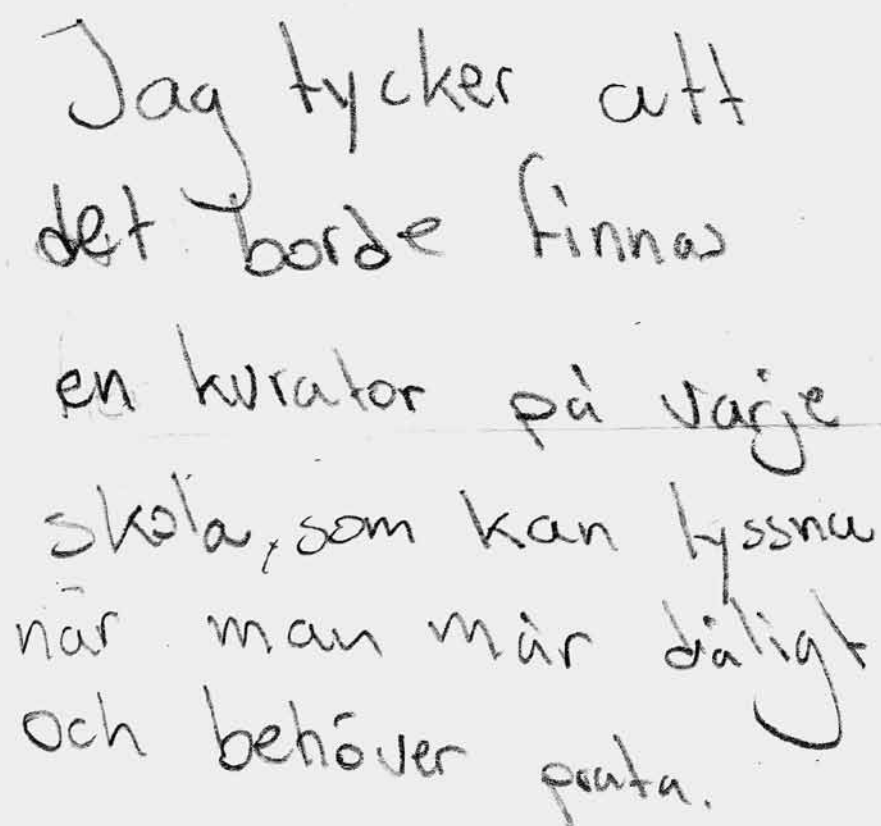 Jag tycker att
det borde finnas
en kurator på varje
skola, som kan lyssna
når man mår dåligt
och behöver prata.